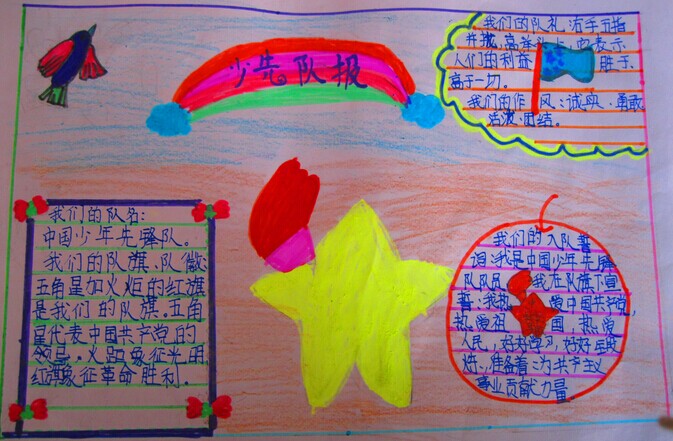 少先队报
我们的队礼:右手五指
并拢,高举头上,它表示
人们的利益 胜于
高于一切。
我们的作风:诚实、勇敢
活泼、团结。
我们的队名:
中国少年先锋队。
我们的队旗、队徽
五角星加火炬的红旗
是我们的队旗。五角
星代表中国共产党的
领导,火炬象征光明
红旗象征革命胜利。
我们的入队誓
词:我是中国少年先锋
队队员 我在队旗下宣
誓:我热 爱中国共产党,
热爱祖 国,热爱
人民,好好学习,好好
炼,准备着:为共产主义
事业贡献力量